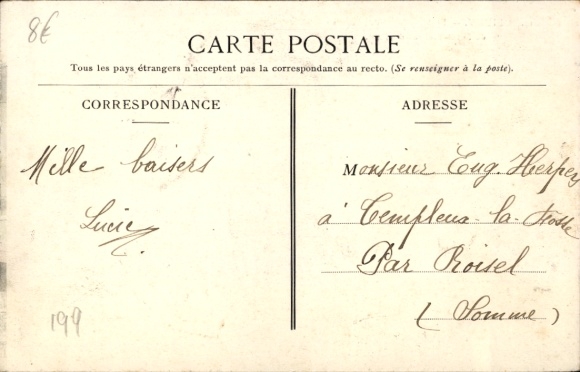 8€
CARTE POSTALE
Tous les pays étrangers n'acceptent pas la correspondance au recto. (Se renseigner à la poste).
CORRESPONDANCE
Mille baisers
Lucie
199
ADRESSE
Monsieur Eug. Herpey
à Templeux-la-Fosse
Par Roisel
(Somme)